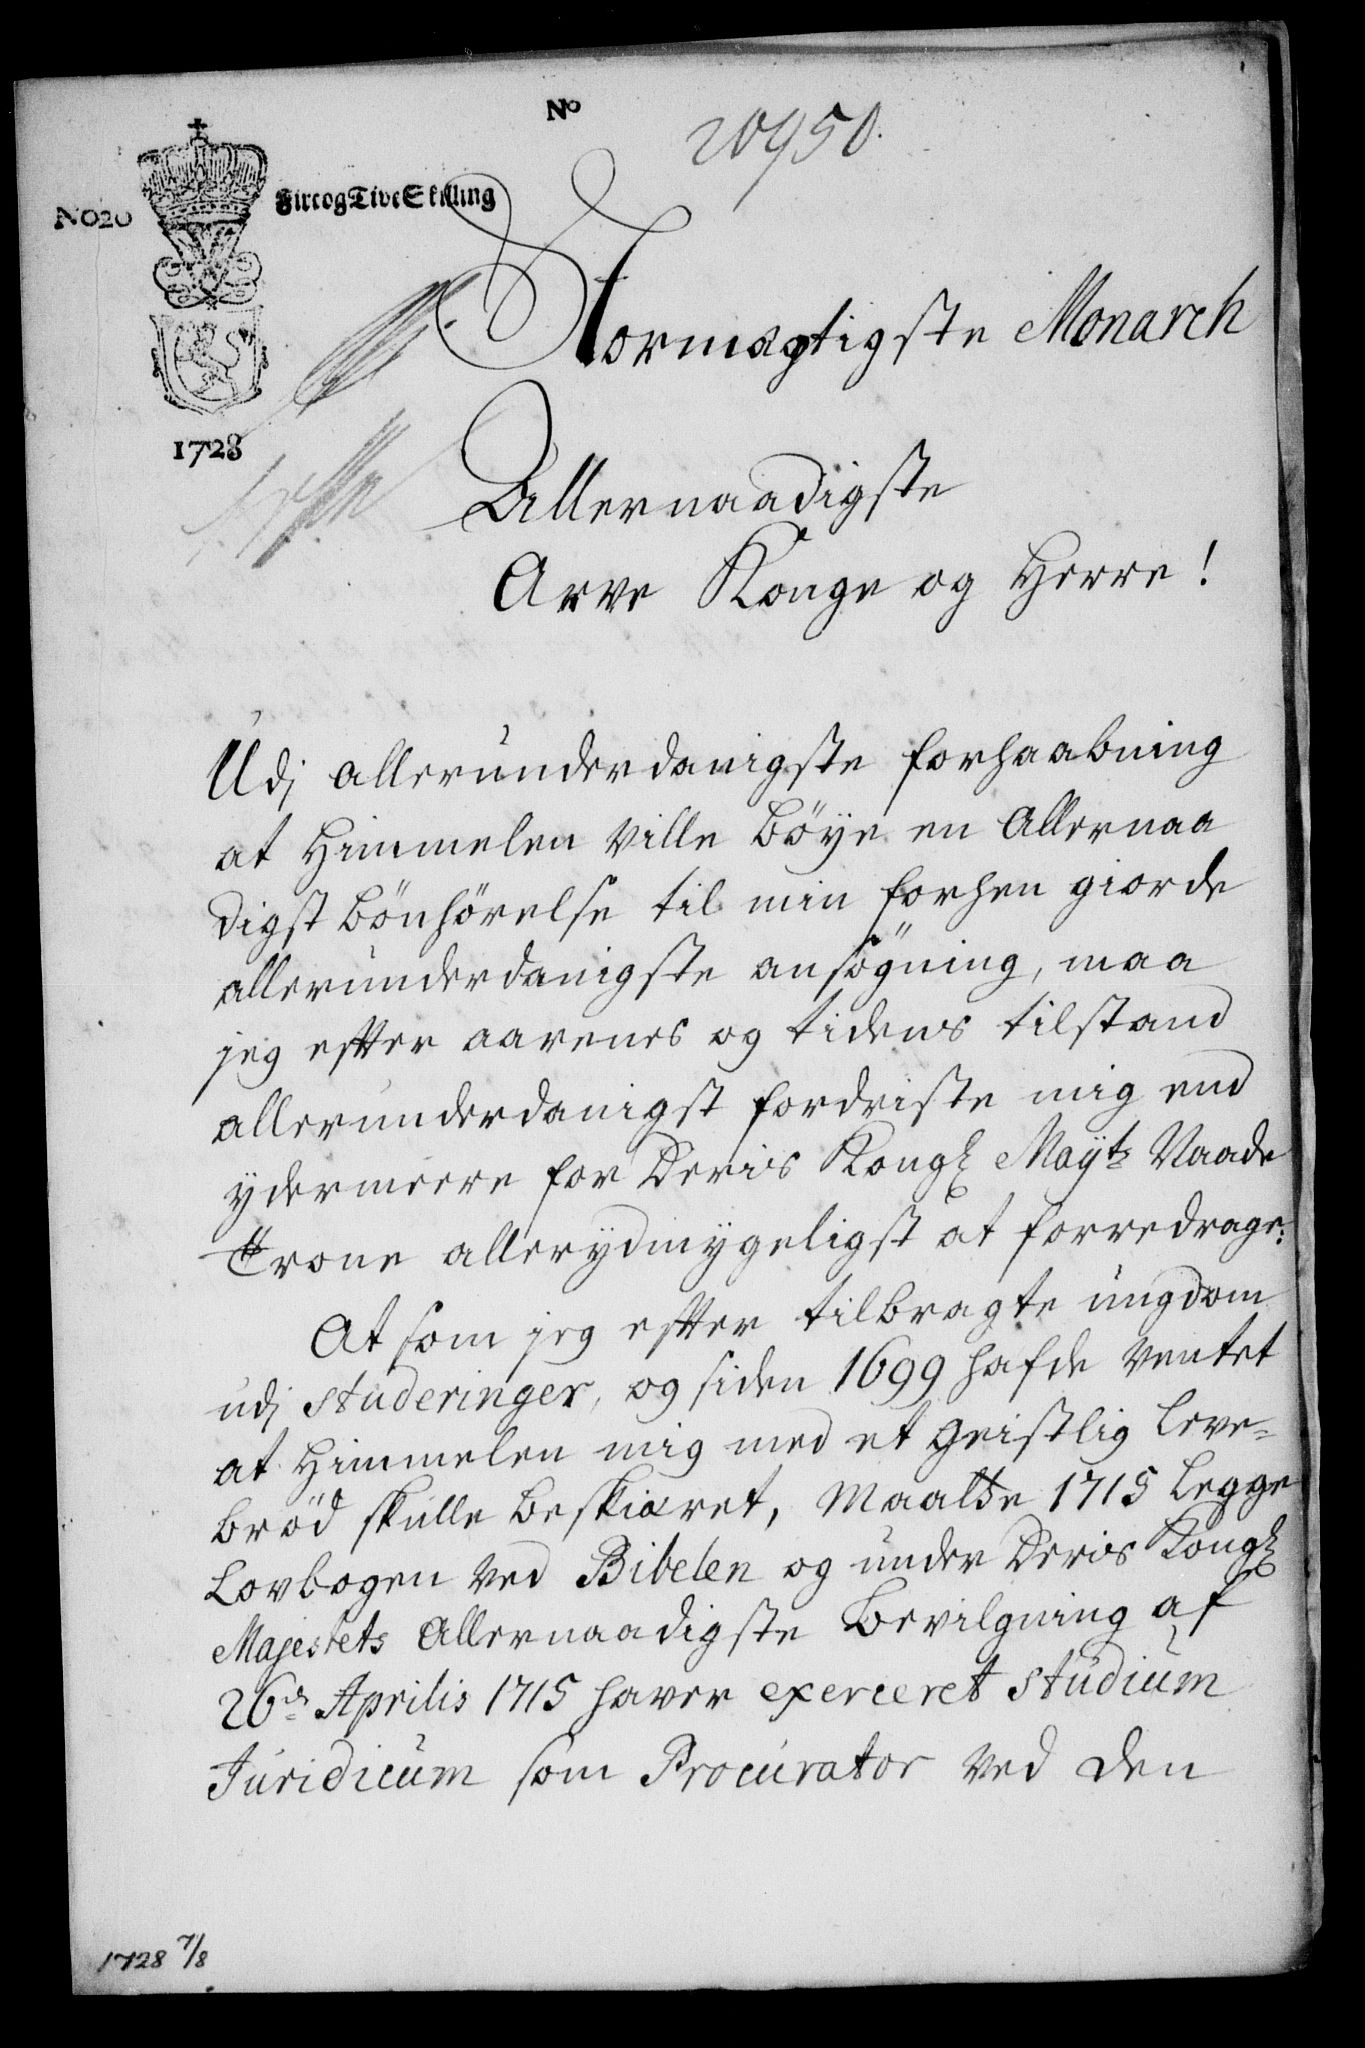 No
20950.
No20
Fire og Tive Skilling
1728
Stormægtigste Monarch
Allernaadigste
Arve Konge og Herre!
Udj allerunderdanigste forhaabning
at Himmelen ville böye en Allernaa
digst bönhörelse til min forhen giorde
allerunderdanigste ansögning, maa
jeg efter aarenes og tidens tilstand
allerunderdanigst fordriste mig end
ydermeere for Deris Kongl Mayts Naade
Trone allerydmygeligst at forredrage:
At som jeg efter tilbragte ungdom
udj studeringer, og siden 1699 hafde ventet
at Himmelen mig med et geistlig leve-
bröd skulle beskiæret, Maatte 1715 legge
Lovbogen ved Bibelen og under Deris Kongl
Majestets Allernaadigste Bevilgning af
26de Aprilis 1715 haver exerceret studium
Juridicum som Procurator ved den
1728 7/8